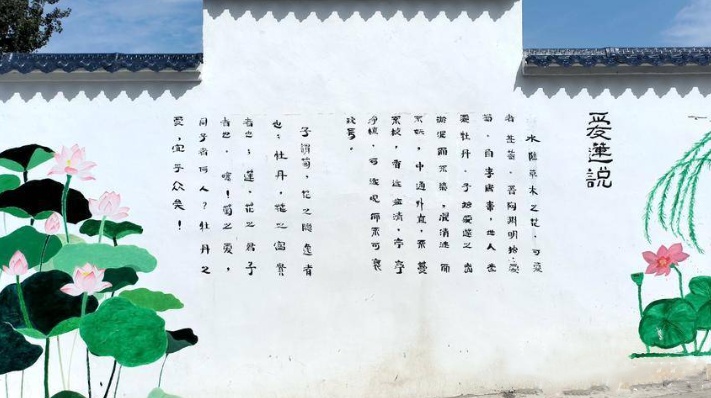 愛蓮説
水陸草木之花，可愛
者甚蕃。晋陶渊明独愛
菊。自李唐来，世人盛
愛牡丹。予独愛蓮之出
淤泥而不染，濯清涟而
不妖，中通外直，不蔓
不枝，香远益清，亭亭
净植，可远观而不可亵
玩焉。
予謂菊，花之隐逸者
也；牡丹，花之富贵
者也；蓮，花之君子
者也。噫！菊之愛，
同予者何人？牡丹之
愛，宜乎众矣！